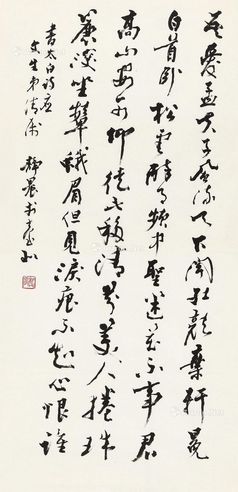 吾爱孟夫子风流天下闻红颜弃轩冕
白首卧松云醉月频中圣迷花不事君
高山安可仰徒此揖清芬美人捲珠
簾深坐颦蛾眉但见泪痕不知心恨谁
书太白诗应
文生弟清属
静农于台北